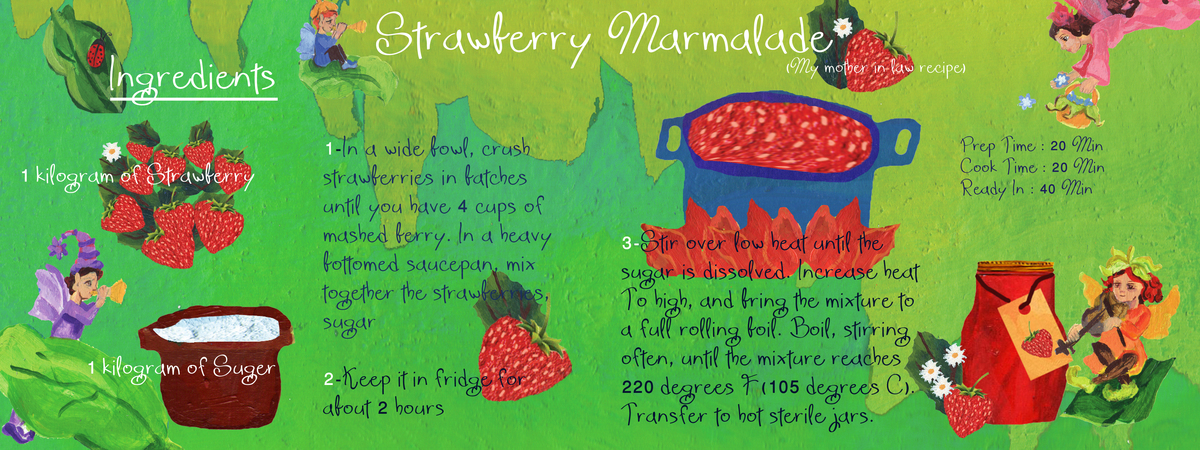 Strawberry Marmalade
(My mother in-law recipe)
Ingredients
1 kilogram of Strawberry
1 kilogram of Suger
1-In a wide bowl, crush
strawberries in batches
until you have 4 cups of
mashed berry. In a heavy
bottomed saucepan, mix
together the strawberries,
sugar
2-Keep it in fridge for
about 2 hours
3-Stir over low heat until the
sugar is dissolved. Increase heat
To high, and bring the mixture to
a full rolling boil. Boil, stirring
often, until the mixture reaches
220 degrees F(105 degrees C).
Transfer to hot sterile jars.
Prep Time : 20 Min
Cook Time : 20 Min
Ready In : 40 Min